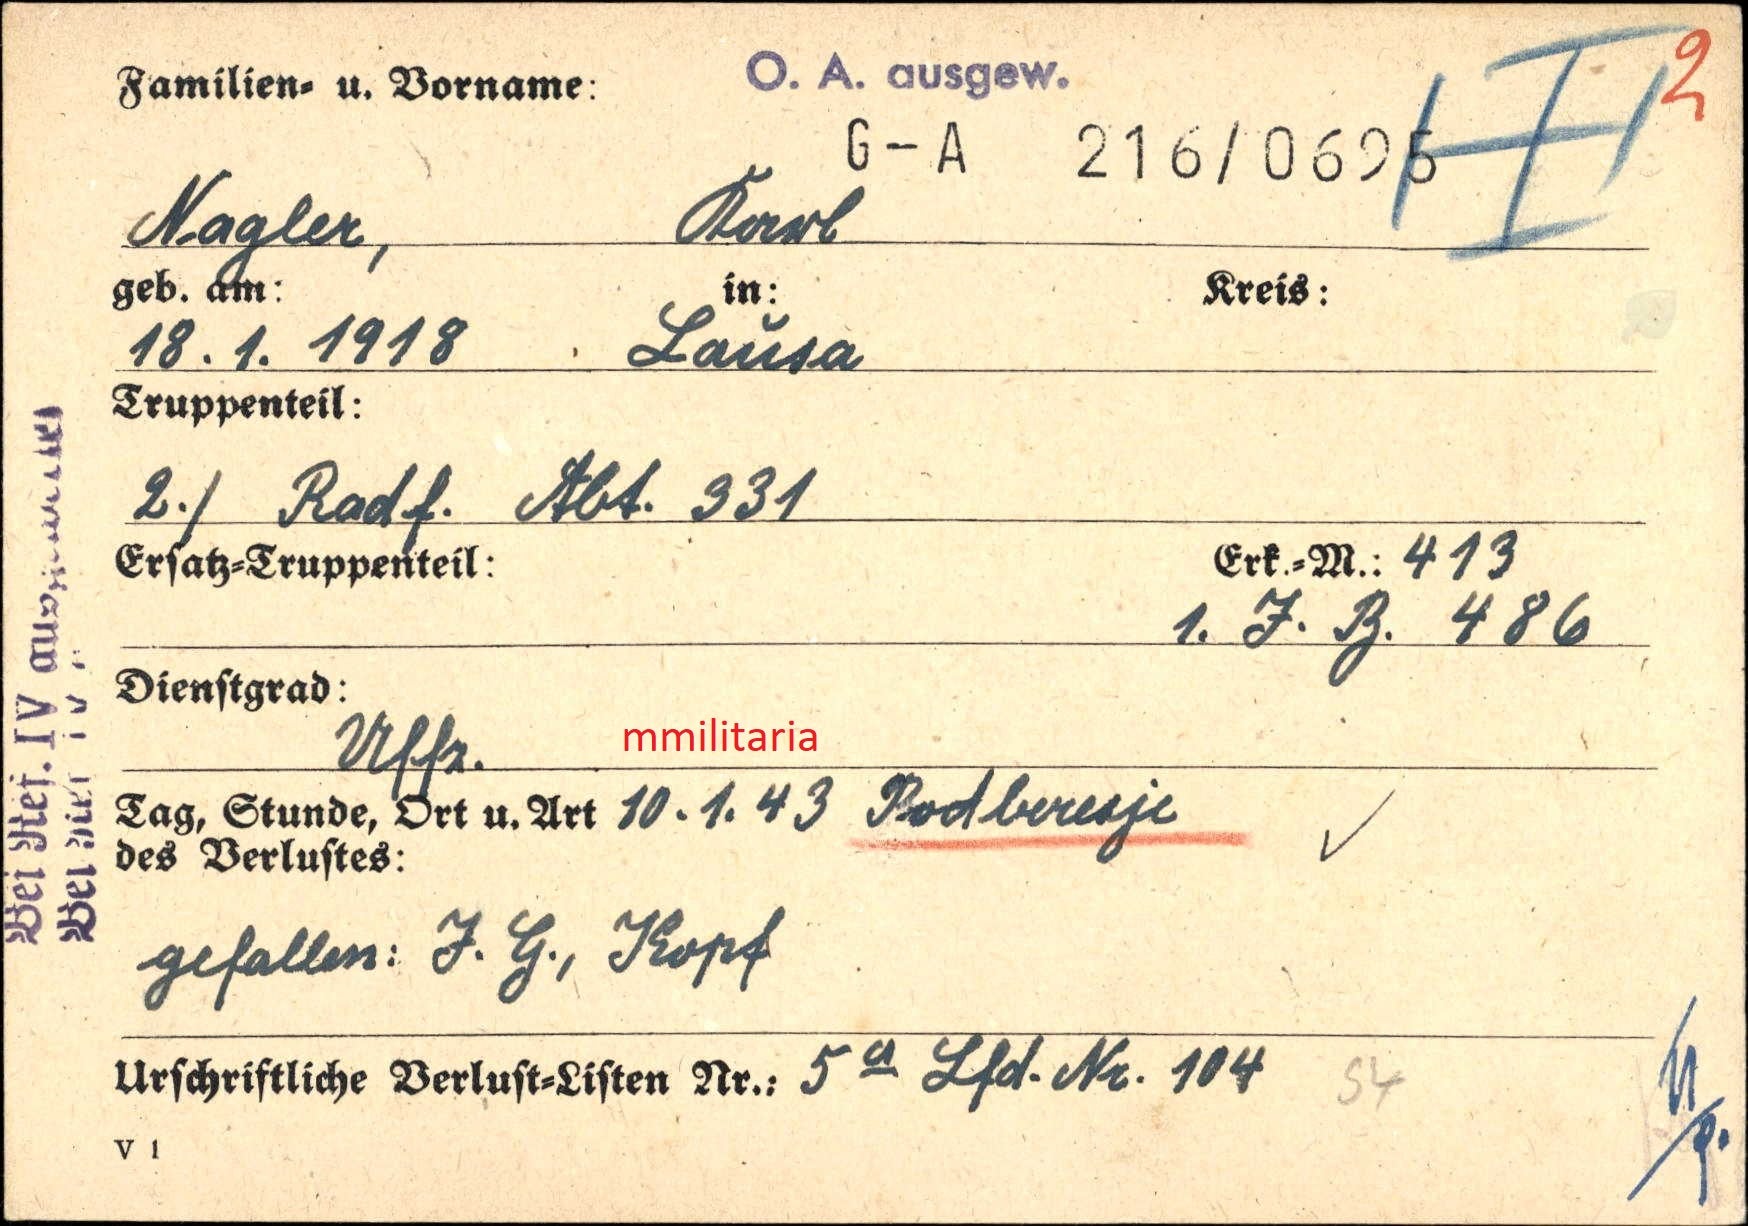 Familien- u. Vorname:
O. A. ausgew.
2
G-A 216/0695
Nagler, Karl
geb. am: in: Kreis:
18.1.1918 Lausa
Truppenteil:
2./ Radf. Abt. 331
Ersatz-Truppenteil: Erk.-M.: 413
1. J. B. 486
Dienstgrad:
Uffz.
mmilitaria
Tag, Stunde, Ort u. Art 10.1.43 Podberesje
des Verlustes:
gefallen: J. G., Kopf
Urschriftliche Verlust-Listen Nr.: 5a Lfd. Nr. 104 54
V 1
Bei Ref. IV
Bei